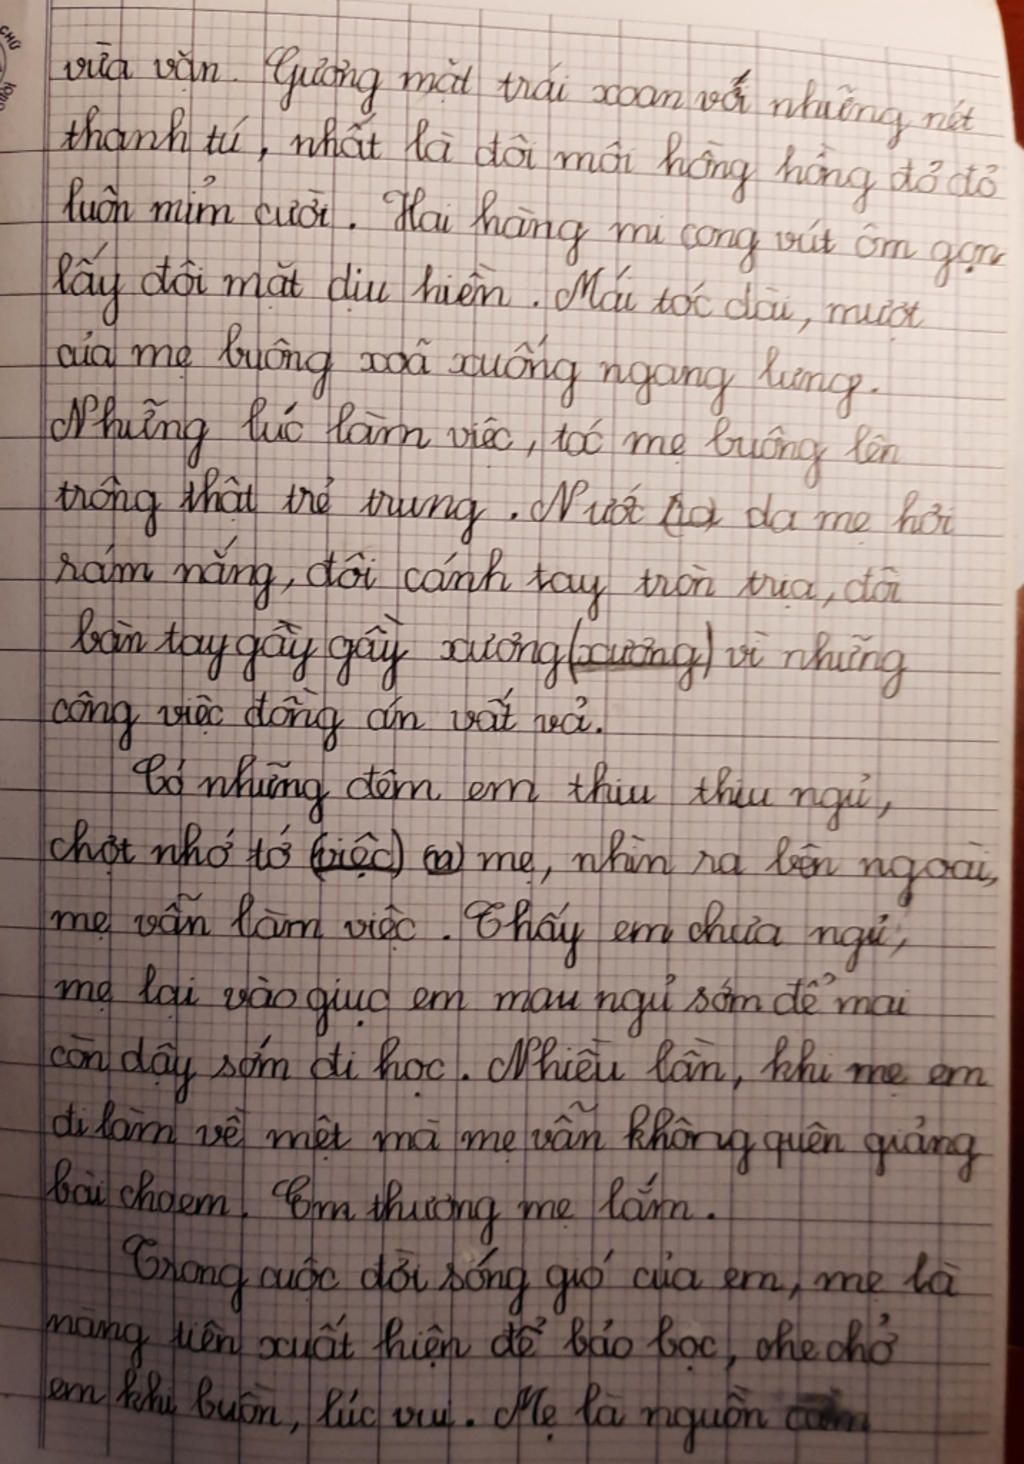 CHỮ
vừa vặn. Gương mặt trái xoan với những nét
thanh tú, nhất là đôi môi hồng hồng đỏ đỏ
luôn mỉm cười. Hai hàng mi cong vút ôm gọn
lấy đôi mắt dịu hiền. Mái tóc dài, mượt
của mẹ buông xoã xuống ngang lưng.
Những lúc làm việc, tóc mẹ buông lên
trông thật trẻ trung. Nướt da mẹ hơi
rám nắng, đôi cánh tay tròn trịa, đôi
bàn tay gầy gầy xương (xương) vì những
công việc đồng án vất vả.
Có những đêm em thiu thiu ngủ,
chợt nhớ tớ (việc) mẹ, nhìn ra bên ngoài,
mẹ vẫn làm việc. Thấy em chưa ngủ,
mẹ lại vào giục em mau ngủ sớm để mai
còn dậy sớm đi học. Nhiều lần, khi mẹ em
đi làm về mệt mà mẹ vẫn không quên giảng
bài cho em. Em thương mẹ lắm.
Trong cuộc đời sóng gió của em, mẹ là
nàng tiên xuất hiện để bảo bọc, che chở
em khi buồn, lúc vui. Mẹ là nguồn